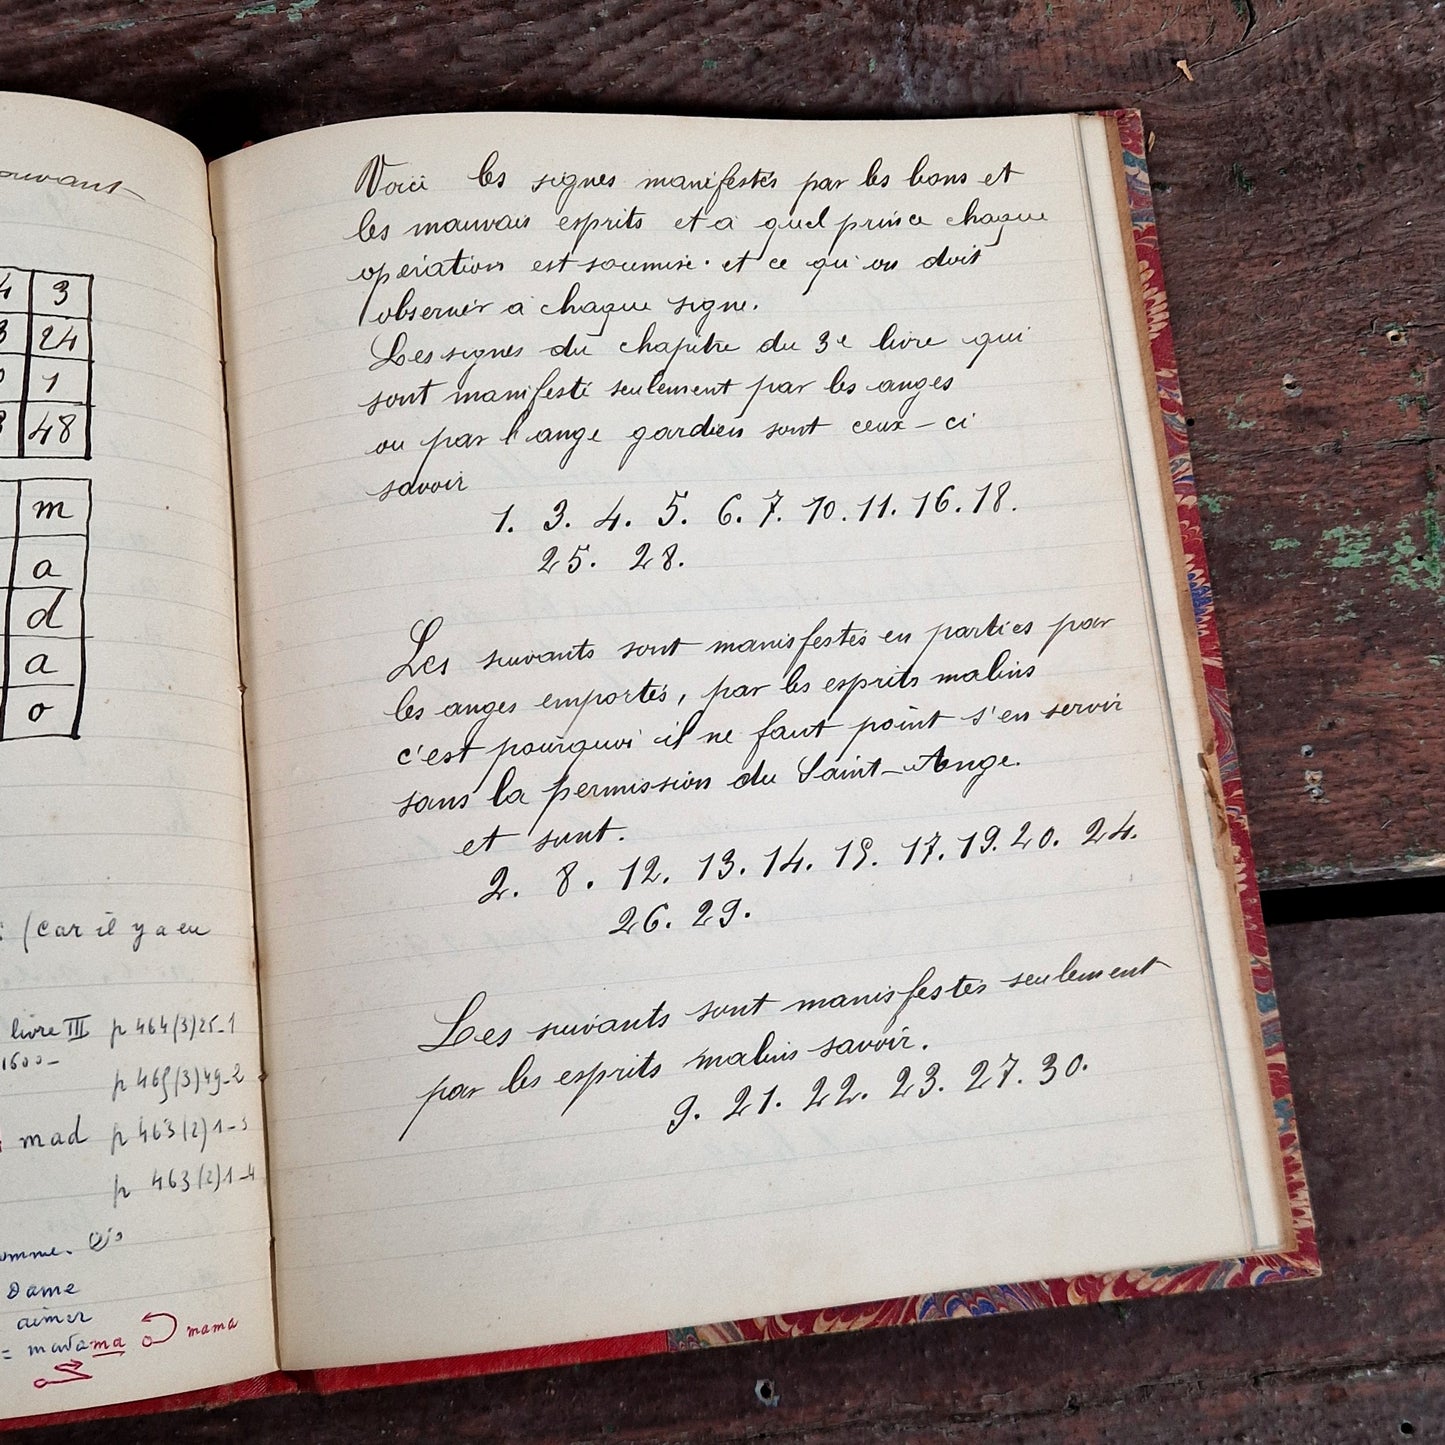 4 3
3 24
1
3 48
m
a
d
a
o
(car il y a eu
livre III p 464(3)25-1
1600-
p 465(3)49-2
mad p 463(2)1-3
p 463(2)1-4
Dame
aimer
= madama mama
Voici les signes manifestés par les bons et
les mauvais esprits et à quel prince chaque
opération est soumise. et ce qu'on doit
observer à chaque signe.
Les signes du chapitre du 3e livre qui
sont manifesté seulement par les anges
ou par l'ange gardien sont ceux-ci
savoir
1. 3. 4. 5. 6. 7. 10. 11. 16. 18.
25. 28.
Les suivants sont manisfestés en parties par
les anges emportés, par les esprits malins
c'est pourquoi il ne faut point s'en servir
sans la permission du Saint-Ange.
et sont.
2. 8. 12. 13. 14. 15. 17. 19. 20. 24.
26. 29.
Les suivants sont manisfestés seulement
par les esprits malins savoir.
9. 21. 22. 23. 27. 30.